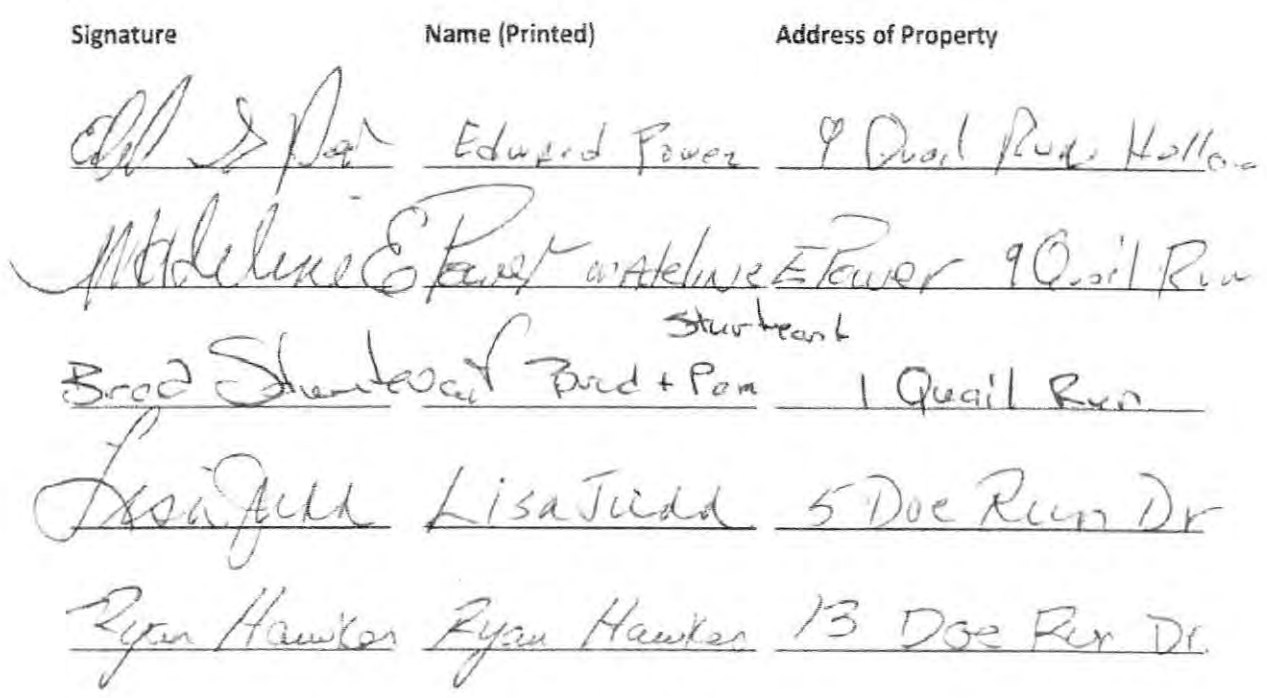 Signature Name (Printed) Address of Property
Edward Power 9 Quail Run Hollow
Madeline E Power Madeline E Power 9 Quail Run
Sturtevant
Brad Sturtevant Brad + Pam 1 Quail Run
Lisa Judd Lisa Judd 5 Doe Run Dr
Ryan Hawkes Ryan Hawkes 13 Doe Run Dr.